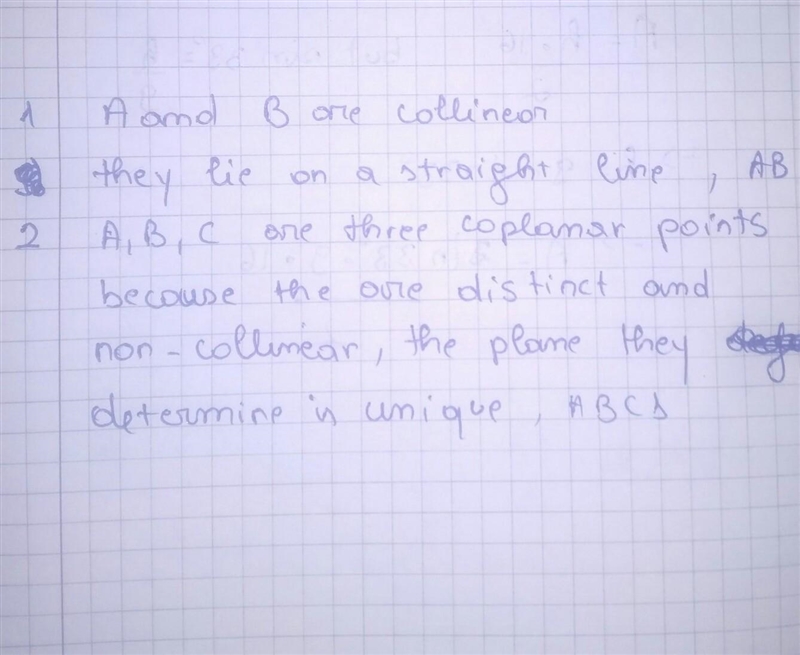 1 A and B are collinear
they lie on a straight line, AB
2 A, B, C are three coplanar points
because the are distinct and
non-collinear, the plane they
determine is unique, ABCD